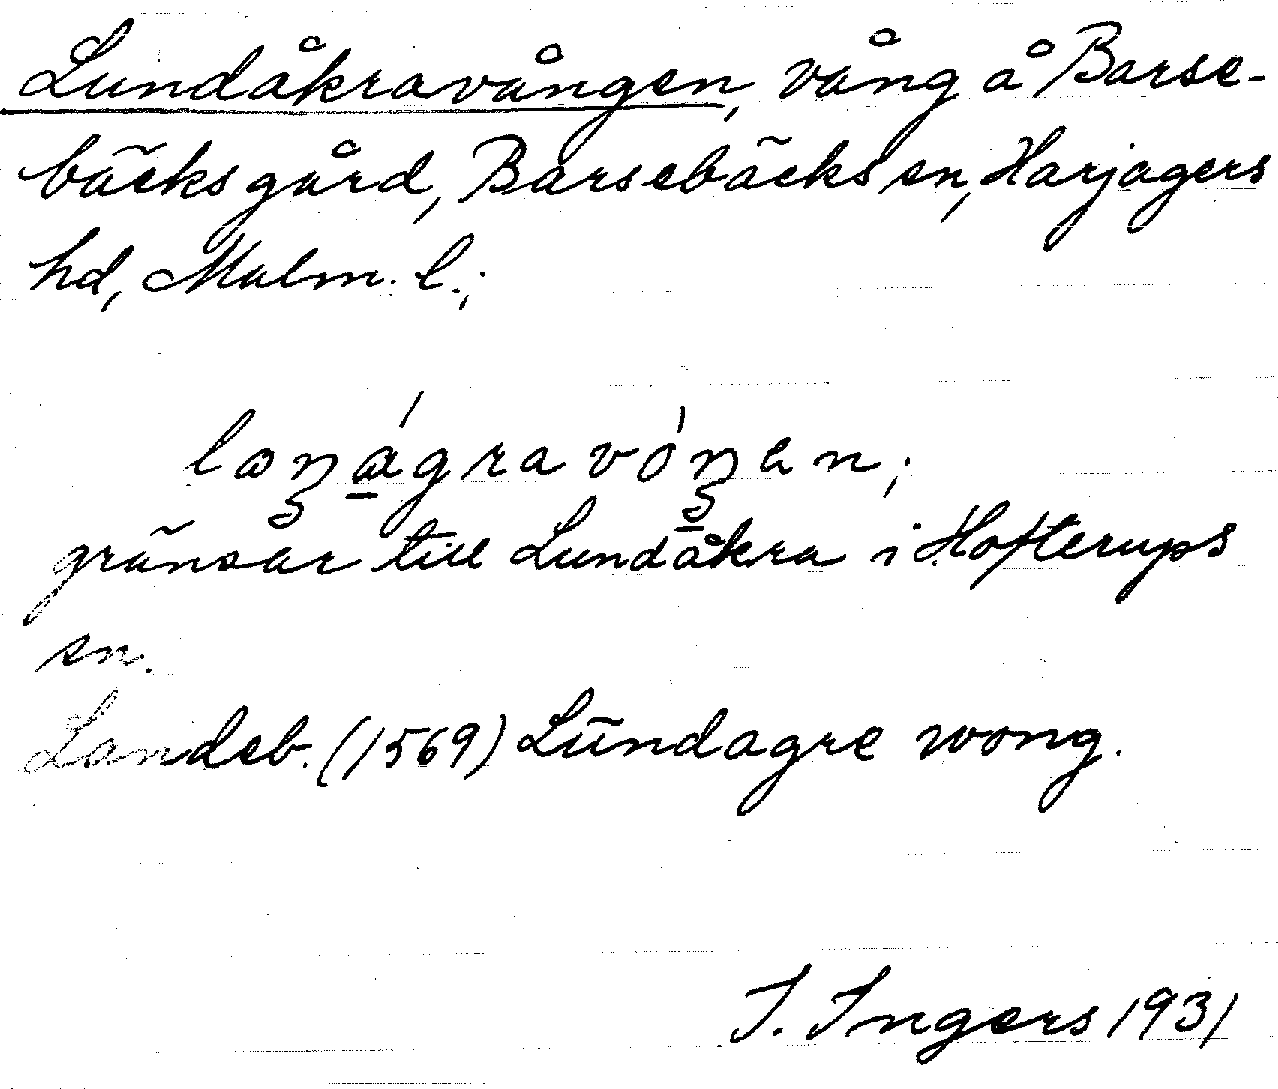 Lundåkravången, vång å Barse-
bäcksgård, Barsebäcks sn, Harjagers
hd, Malm. l.;
gränsar till Lundåkra i Hofterups
sn.
Landeb. (1569) Lūndagre wong.
I. Ingers 1931